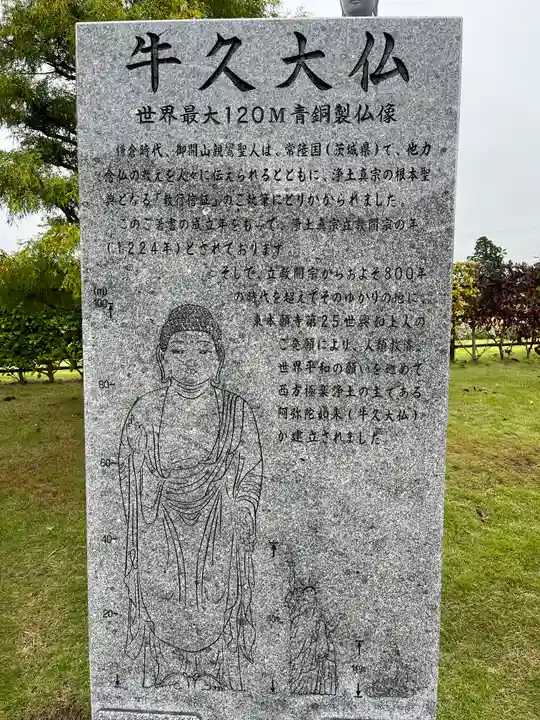 牛久大仏
世界最大120M青銅製仏像
鎌倉時代、御開山親鸞聖人は、常陸国(茨城県)で、他力
念仏の教えを人々に伝えられるとともに、浄土真宗の根本聖
典となる「教行信証」のご執筆にとりかかられました。
このご著書の成立年をもって、浄土真宗立教開宗の年
(1224年)とされております。
そして、立教開宗からおよそ800年
の時代を超えてそのゆかりの地に、
東本願寺第25世興如上人の
ご発願により、人類救済、
世界平和の願いを込めて
西方極楽浄土の主である
阿弥陀如来(牛久大仏)
が建立されました。
(m)
100
80
60
40
20